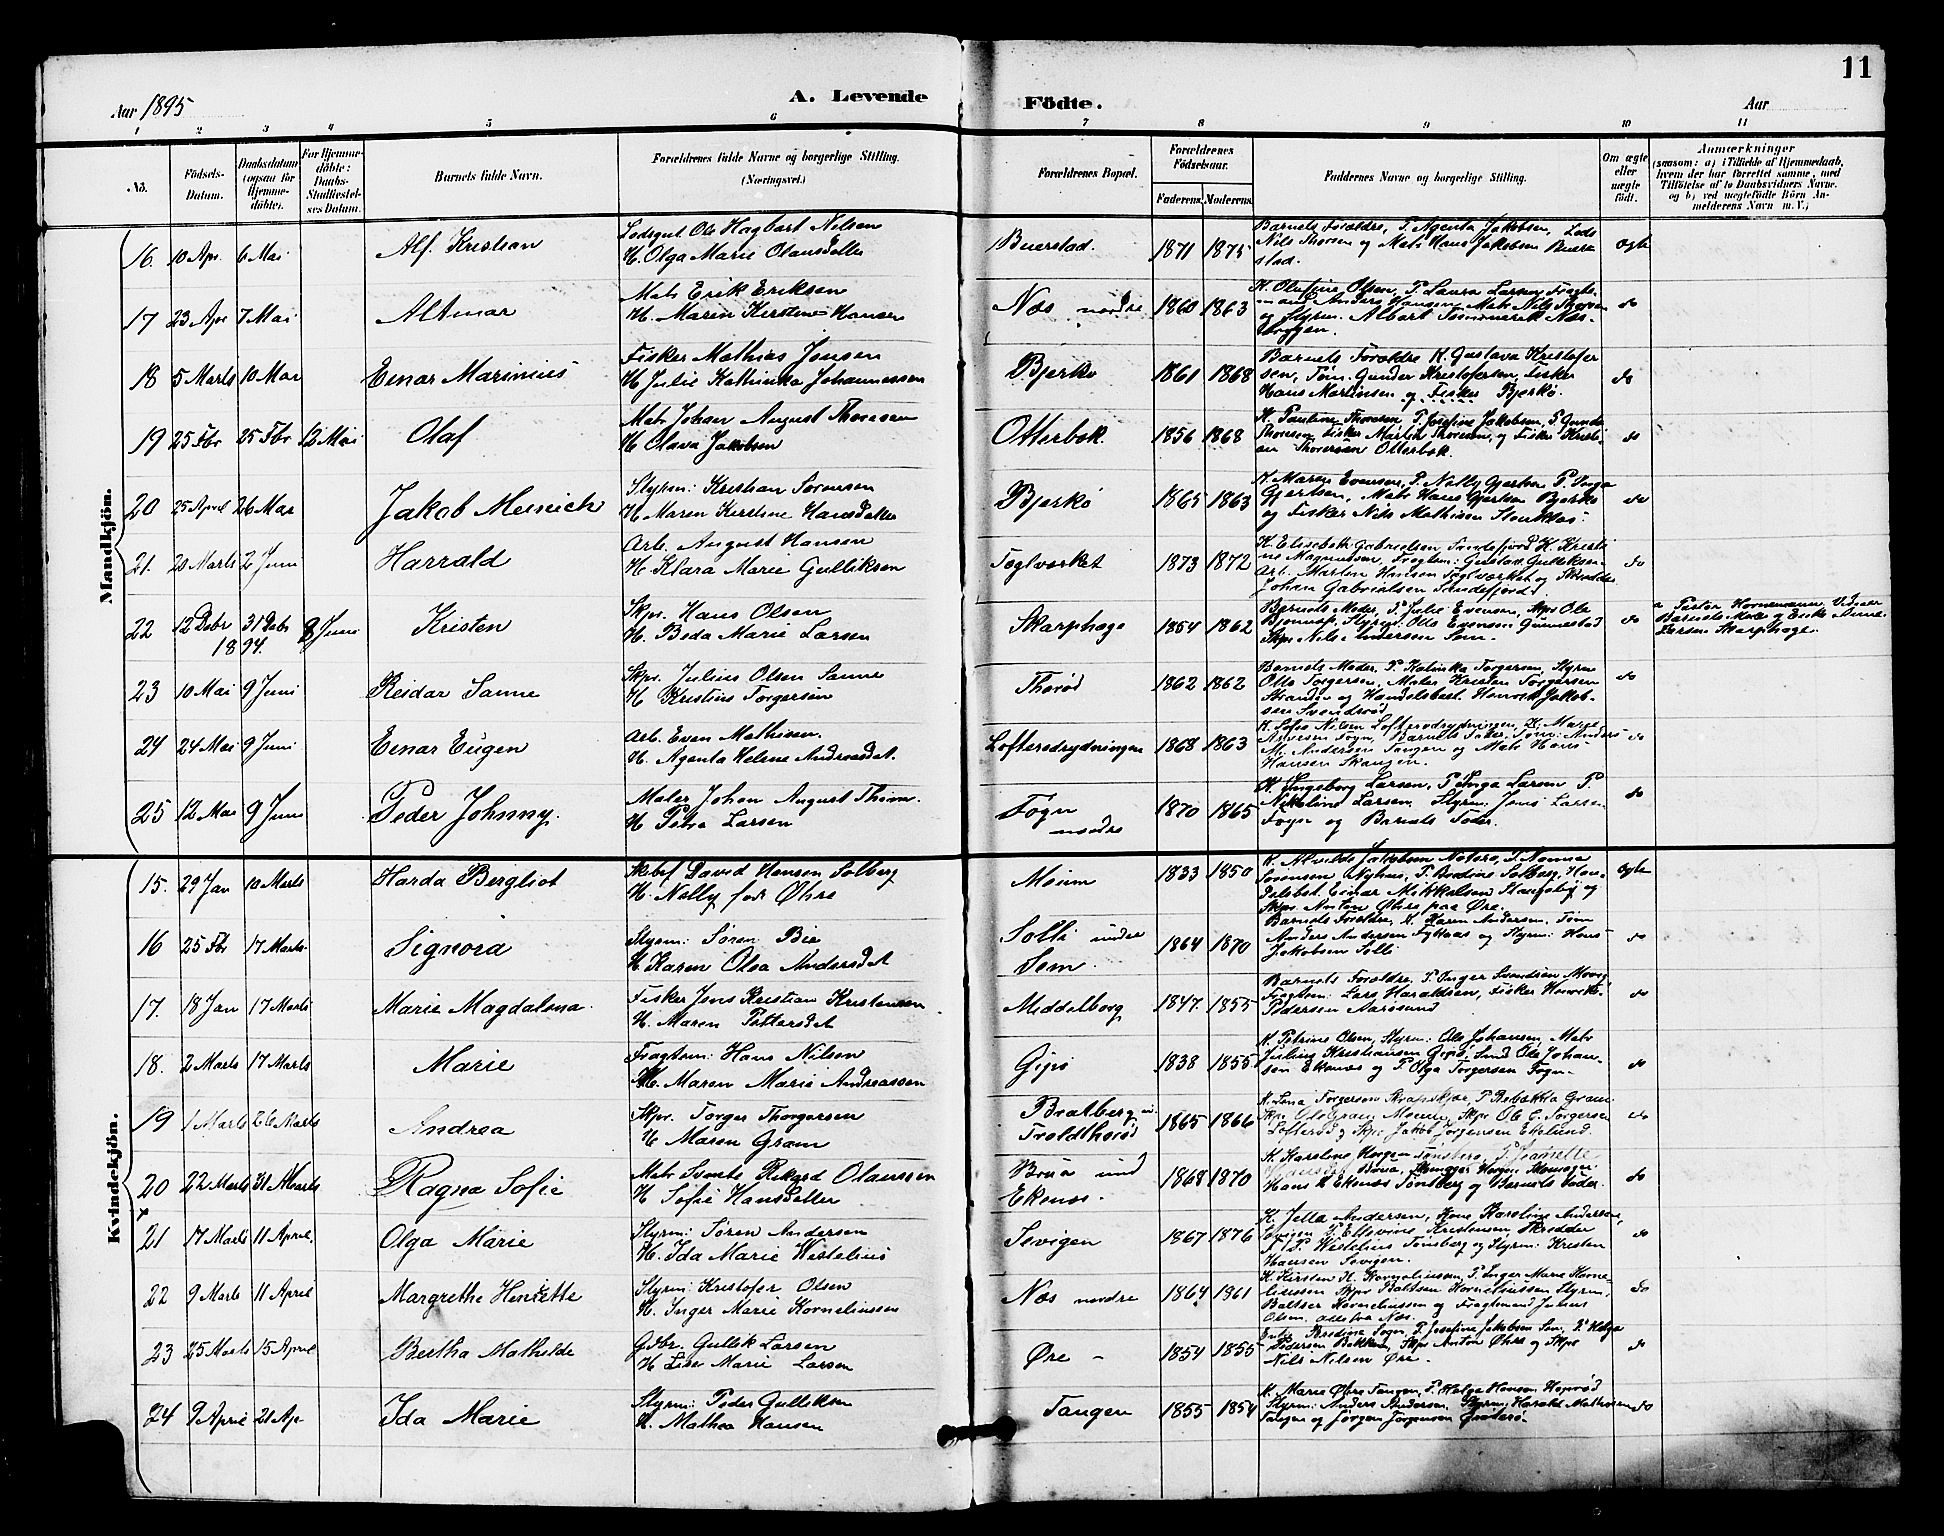 Aar 1895
A. Levende Födte.
Aar
11
1 2 3 4 5 6 7 8 9 10 11
No.
Födsels-Datum.
Daabsdatum (ogsaa for Hjemmedöbte).
For Hjemmedöbte: Daabs-Stadfæstelses Datum.
Barnets fulde Navn.
Forældrenes fulde Navne og borgerlige Stilling. (Næringsvei.)
Forældrenes Bopæl.
Forældrenes Födselsaar.
Faderens. Moderens.
Faddernes Navne og borgerlige Stilling.
Om ægte eller uægte födt.
Anmærkninger
(saasom: a) i Tilfælde af Hjemmedaab, hvem der har forrettet samme, med Tilföielse af to Daabsvidners Navne. og b) ved uægtefödte Börn Anmelderens Navn m. V.)
Mandkjön.
16. 10 Apr. 6 Mai Alf Kristian
Ole Hagbart Nilsen
H. Olga Marie Olausdatter
Buerstad. 1871 1875
Barnets Forældre, P. Agenta Jakobsen, Lods
Nils Thorsen og Matr Hans Jakobsen Buer
stad.
17 23 Apr 7 Mai Altmar
Matr Erik Eriksen
H. Maren Kirstine Hansen
Næs nordre 1860 1863
K. Olefine Olsen, P. Laura Larsen,
Anders Hansen, Matr Nils
og Styrm. Albert
do
18 5 Marts 10 Mai Einar Marinius
Fisker Mathias Jensen
H Julie Kathinka Johannessen
Bjerkø 1861 1868
Barnets Forældre K. Gustava Kristofer
sen, Töm. Gunder Kristofersen, Fisker
Hans Martinsen og Fisker Bjerkö.
do
19 25 Fbr 25 Fbr 12 Mai Olaf
Matr Johan August Thoresen
H Olava Jakobsen
Otterbæk. 1856 1868
K. Pauline Thoresen, P. Josefine Jakobsen, P.
Thoresen Fisker Martin Thoresen, og Fisker Kristi
an Thoresen Otterbæk.
do
20 25 April 26 Mai Jakob Meinich
Styrm: Kristian Sørensen
H Maren Kirstine Hansdatter
Bjerkö 1865 1863
K. Maren Evensen, P. Nelly Gjertsen P. Inga
Gjertsen, Matr Hans Gjertsen Bjerkö
og Fisker Nils Mathisen
do
21. 20 Marts 2 Juni Harrald
Arb. August Hansen
H Klara Marie Gulliksen
Teglverket 1873 1872
K. Elisabeth Gabrielsen Sandefjord K. Kristi
ne Magnussen, Gustav Gulliksen
Arb. Martin Hansen Teglverket og
Johan Gabrielsen Sandefjord
do
22 12 Debr 31 Debr 1894. 8 Juni Kristen
Skpr. Hans Olsen
H. Beda Marie Larsen
Skarphage 1854 1862
Barnets Moder, P. Julie Evensen, Skpr Ole
Styrm: Otto Evensen Gunnestad
Skpr Nils Andersen Sem.
do
a Pastor Hornemann Vidner
Barnets Moder og Enke Anne
Larsen Skarphage.
23 10 Mai 9 Juni Reidar Sanne
Skpr. Julius Olsen Sanne
H Kristine Torgersen
Thorød 1862 1862
Barnets Moder, P. Katinka Torgersen, Styrm
Otto Torgersen, Maler Kristen Torgersen
Stranden og Handelsbest. Henrik Jakob-
sen
do
24 24 Mai 9 Juni Einar Eugen
Arb. Even Mathisen.
H. Agenta Helene Andreasdat.
Lofterödrydningen 1868 1863
K. Sofie Nilsen Lofterødrydningen, K. Maren
Arvesen Føgn, Barnets Fader, Töm: Anders
M. Andersen Tangen og Matr Hans
Hansen Skaugen.
do
25 12 Mai 9 Juni Peder Johnny.
Maler Johan August Thom.
H Petra Larsen
Føgn nordre 1870 1865
K. Ingeborg Larsen, P. Inga Larsen P.
Nikoline Larsen, Styrm: Jens Larsen
Føgn og Barnets Fader.
do
Kvindekjön.
15. 29 Jan 10 Marts Harda Bergliot
Skibsf David Hansen Solberg
H. Nelly född Øhre
Moium 1833 1850
K. Alvilde Jakobsen Noterø, P. Nanna
Sørensen P. Bredine Solberg, Han-
delsbst. Einar Mikkelsen og
Skpr. Anton Øhre paa Øre.
16 25 Fbr 17 Marts. Signora
Styrm: Søren Bie
H. Karen Olea Andersdat
Solli under Sem. 1864 1870
Barnets Forældre, K. Karen Andersen, Töm
Anders Andersen og Styrm: Hans
Jakobsen Solli
do
17. 18 Jan 17 Marts Marie Magdalena.
Fisker Jens Kristian Kristensen
H. Maren Pettersdat
Meddelborg 1847 1855
Barnets Forældre, P. Inger Svendsen
Fragtem: Lars Haraldsen, Fisker Henrik
Pedersen Aarösund
do
18. 2 Marts 17 Marts Marie
Fragtem: Hans Nilsen
H. Maren Marie Andreassen
Gipö 1838 1855
K. Petrine Olsen, Styrm: Ole Johansen, Matr
Julius Kristiansen Gipö, Smed Ole Johan-
sen Ekenæs og P. Olga Torgersen Føgn.
do
19 1 Marts 26 Marts Andrea
Skpr. Torger Thorgersen
H Maren Gram
Bratberg u. Troldthorød 1865 1866
K. Lina Torgersen P. Rebekka Gram
Skpr Ole Gram Skpr Ole C. Torgersen
Lofterød og Skpr Jakob Jørgensen Ekelund.
do
20 22 Marts 31 Marts Ragna Sofie
Matr Svente Rikard Olaussen
H Sofie Hansdatter
Brua und Ekenæs. 1868 1870
K. Karoline Tønsberg, P. Jeanette
Hansdat Brua,
Hans Ekenæs Tønsberg og Barnets Fader.
do
x
21 17 Marts 11 April. Olga Marie
Styrm: Søren Andersen
H. Ida Marie Wistelius
Sevigen 1867 1876
K. Jella Andersen, Kone Karoline Andersen,
Sevigen P. Ellevine Kristensen Skrædder
J. P. Wistelius Tönsberg og Styrm: Kristen
Hansen Sevigen.
do
22 9 Marts 11 April Margrethe Henriette
Styrm: Kristofer Olsen
H. Inger Marie Korneliussen
Næs nordre 1864 1861
K. Kirsten H. Korneliussen, P. Inger Marie Korne-
liussen Skpr Baltser Korneliussen Styrm.
Baltser Korneliussen og Fragtmand Julius
Olsen. alle fra Næs.
do
23 25 Marts 15 April Bertha Mathilde
Gdbr. Gullik Larsen
H Lise Marie Larsen
Øre - 1854 1855
Enke Bredine Føgn, P. Josefine Jakobsen Sem, P. Helga
Pedersen Bakken, Skpr Anton Øhre og Skpr
Nils Nilsen Øre.
do
24 9 April 21 Ap Ida Marie
Styrm: Peder Gulliksen
H. Mathea Hansen
Tangen 1855 1854
K. Marie Øhre Tangen, P. Helga Hansen
Styrm: Anders Andersen, Styrm: Harald Mathisen
Tangen og Jörgen Jørgensen
do